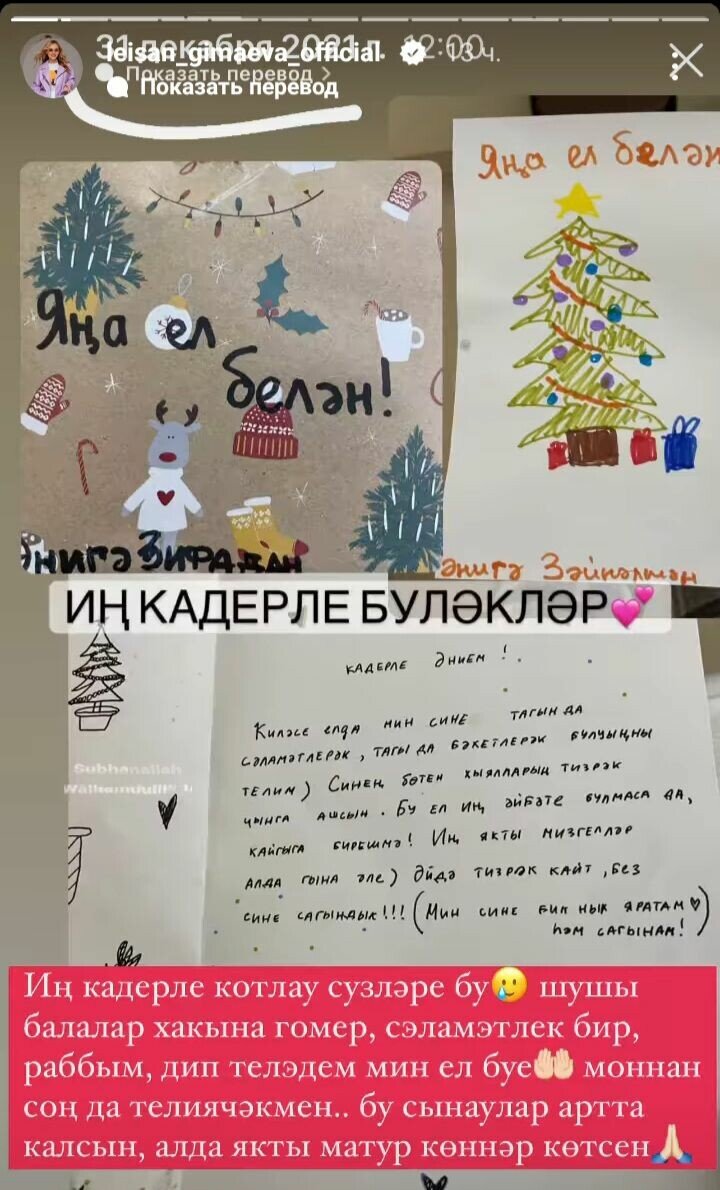 31 декабря 2021 г. 12:00
leisan_gimaeva_official 13 ч.
Показать перевод >
Показать перевод
Яңа ел белән
Яңа ел
белән!
Әнигә Зирадан
Әнигә Зәйнәптән
ИҢ КАДЕРЛЕ БУЛӘКЛӘР💕
КАДЕРЛЕ ӘНИЕМ !
Киләсе елда мин сине тагын да
сәламәтлерәк, тагы да бәхетлерәк булуыңны
телим) Синең бөтен хыялларың тизрәк
чынга ашсын. Бу ел иң әйбәте булмаса да,
кайгыга бирешмә! Иң якты мизгелләр
алда гына әле) Әйдә тизрәк кайт, без
сине сагындык!!! (Мин сине бик нык яратам♡
һәм сагынам!)
Subhanallah
Walhamdulill
Иң кадерле котлау сузләре бу🥲 шушы
балалар хакына гомер, сэламэтлек бир,
раббым, дип телэдем мин ел буе🤲🏻 моннан
соң да телиячәкмен.. бу сынаулар артта
калсын, алда якты матур көннәр көтсен🙏🏻